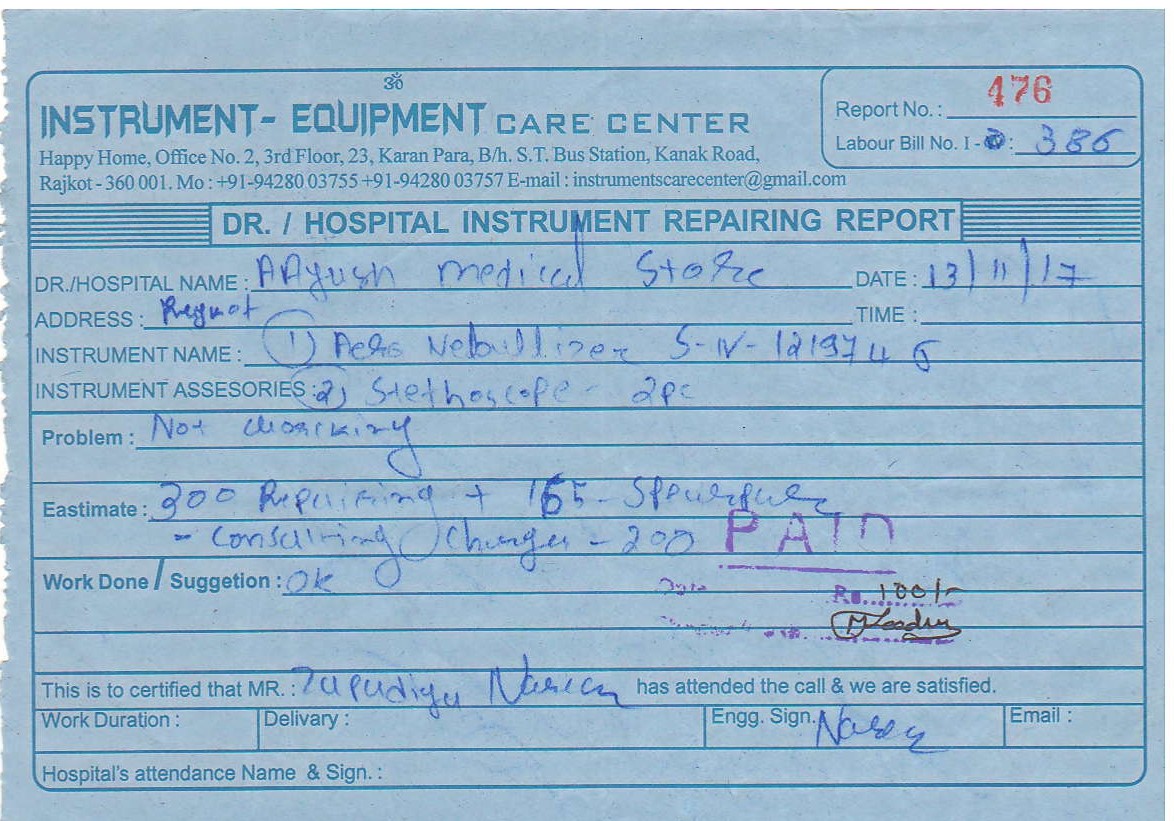 ॐ
INSTRUMENT- EQUIPMENT CARE CENTER
Happy Home, Office No. 2, 3rd Floor, 23, Karan Para, B/h. S.T. Bus Station, Kanak Road,
Rajkot - 360 001. Mo : +91-94280 03755 +91-94280 03757 E-mail : instrumentscarecenter@gmail.com
Report No. : 476
Labour Bill No. I - : 386
DR. / HOSPITAL INSTRUMENT REPAIRING REPORT
DR./HOSPITAL NAME : AAyush medical Store DATE : 13/11/17
ADDRESS : TIME :
INSTRUMENT NAME : 1) Nebullizer
INSTRUMENT ASSESORIES : 2) Stethoscope - 2pc
Problem : Not
Eastimate : 300 Repairing + 165 -
- Charges - 200 PAID
Work Done / Suggetion : Ok Date Rs. 100/-
This is to certified that MR. : has attended the call & we are satisfied.
Work Duration : Delivary : Engg. Sign. Email :
Hospital's attendance Name & Sign. :